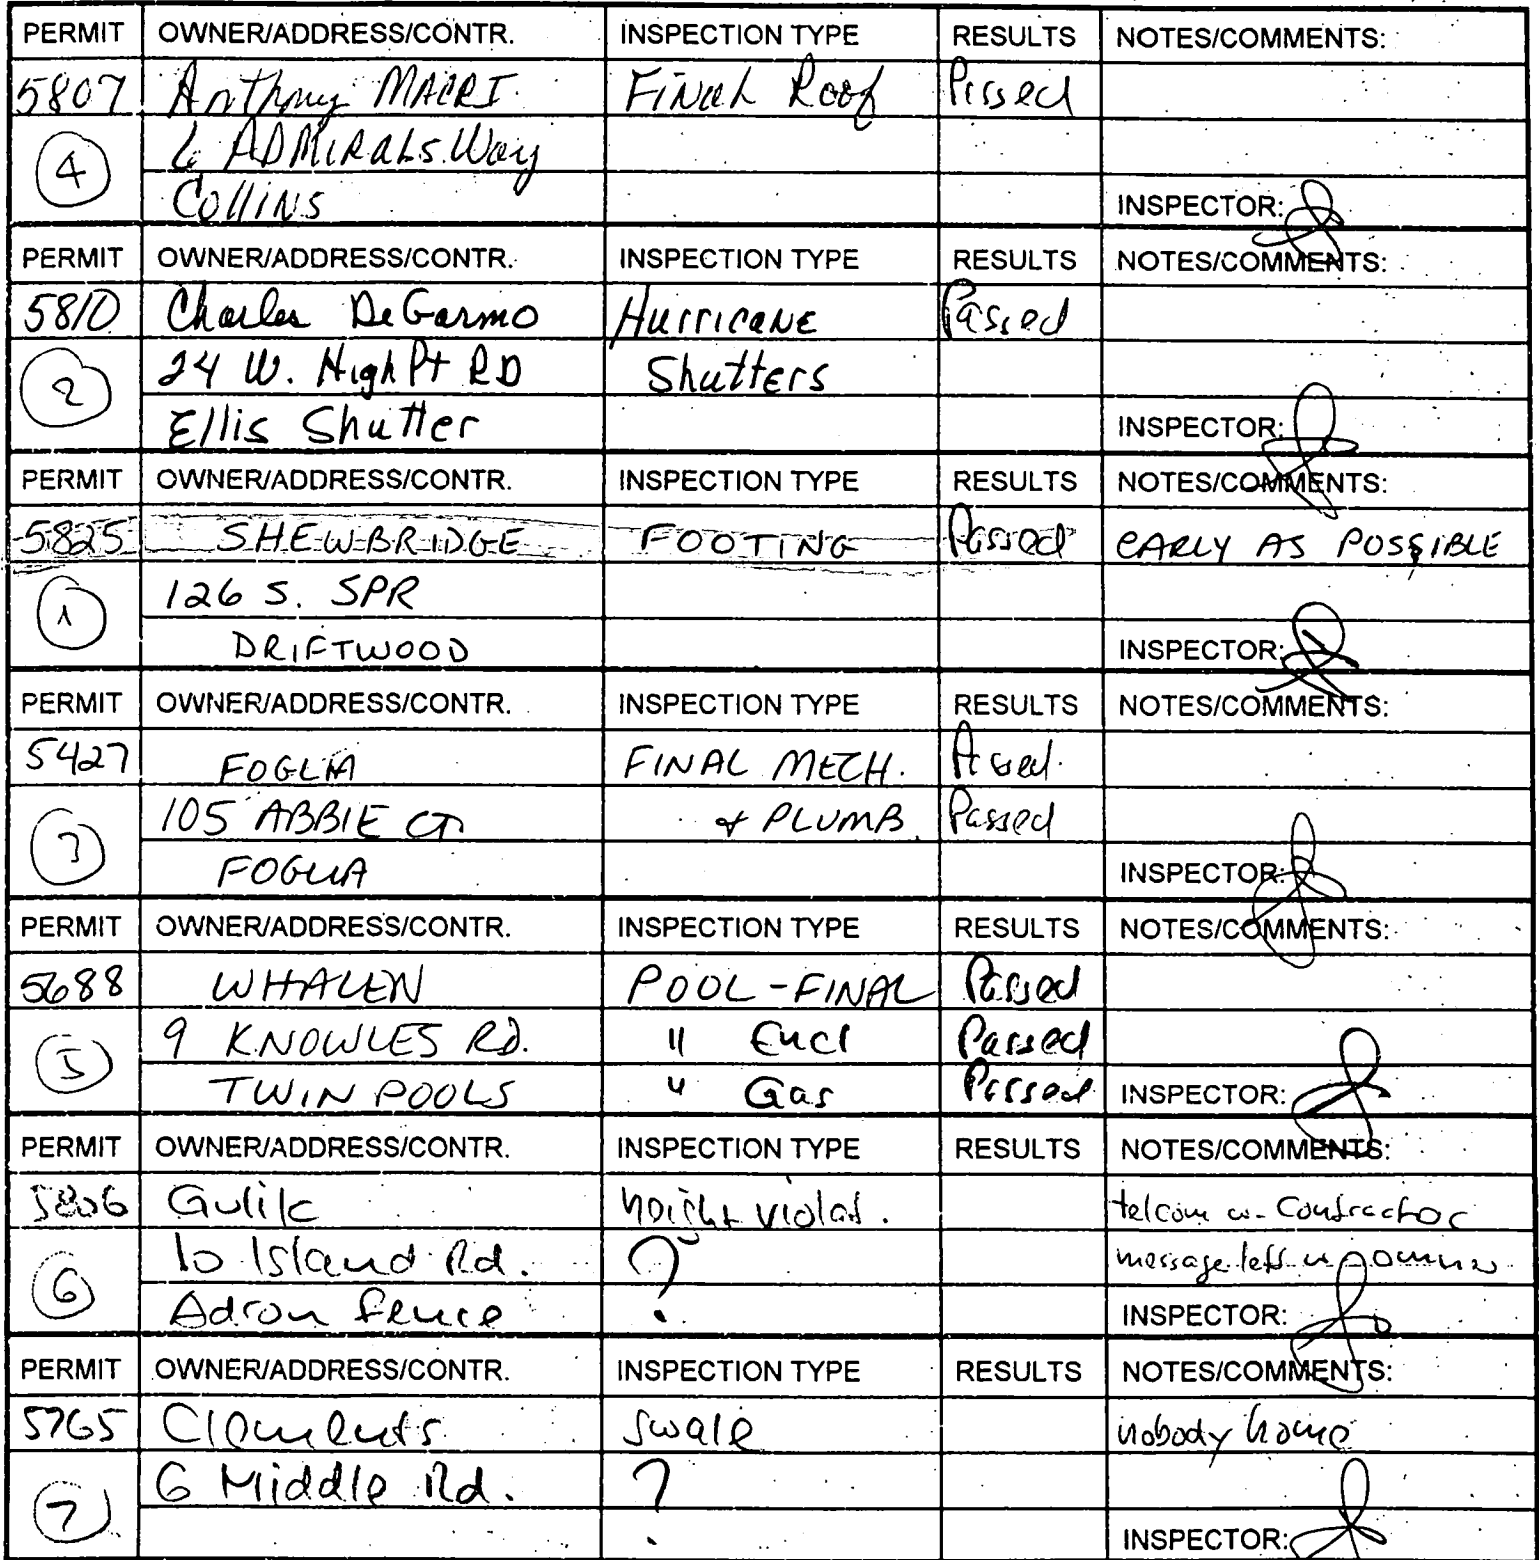 PERMIT OWNER/ADDRESS/CONTR. INSPECTION TYPE RESULTS NOTES/COMMENTS:
5807 Anthony MACRI FINAL Roof Passed
4 6 ADMIRALS Way
Collins INSPECTOR:
PERMIT OWNER/ADDRESS/CONTR. INSPECTION TYPE RESULTS NOTES/COMMENTS:
5810 Charles DeGarmo Hurricane Passed
2 24 W. High Pt RD Shutters
Ellis Shutter INSPECTOR:
PERMIT OWNER/ADDRESS/CONTR. INSPECTION TYPE RESULTS NOTES/COMMENTS:
5825 SHEWBRIDGE FOOTING Passed EARLY AS POSSIBLE
1 126 S. SPR
DRIFTWOOD INSPECTOR:
PERMIT OWNER/ADDRESS/CONTR. INSPECTION TYPE RESULTS NOTES/COMMENTS:
5427 FOGLIA FINAL MECH. Passed
3 105 ABBIE CT & PLUMB. Passed
FOGLIA INSPECTOR:
PERMIT OWNER/ADDRESS/CONTR. INSPECTION TYPE RESULTS NOTES/COMMENTS:
5688 WHALEN POOL-FINAL Passed
5 9 KNOWLES RD. " Encl Passed
TWIN POOLS " Gas Passed INSPECTOR:
PERMIT OWNER/ADDRESS/CONTR. INSPECTION TYPE RESULTS NOTES/COMMENTS:
5806 Gulik height violat. telcom w- Contractor
6 10 Island Rd. ? message left w owner
Adron fence INSPECTOR:
PERMIT OWNER/ADDRESS/CONTR. INSPECTION TYPE RESULTS NOTES/COMMENTS:
5765 Clements swale nobody home
7 6 Middle Rd. ?
INSPECTOR: